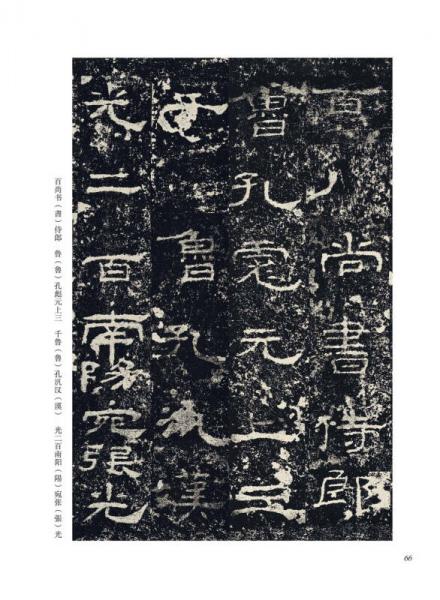 百尚書侍郎
魯孔彪元上三
千 魯孔汎漢
光二百南陽宛張光
百尚书（書）侍郎 鲁（魯）孔彪元上三 千鲁（魯）孔汎汉（漢） 光二百南阳（陽）宛张（張）光
66